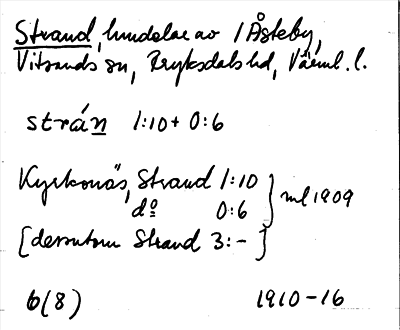 Strand, hmdelar av 1 Åsteby,
Vitsands sn, Fryksdals hd, Värml. l.
strán 1:10 + 0:6
Kyrkonäs, Strand 1:10
do 0:6 } ml 1909
[dessutom Strand 3:-]
6(8) 1910-16